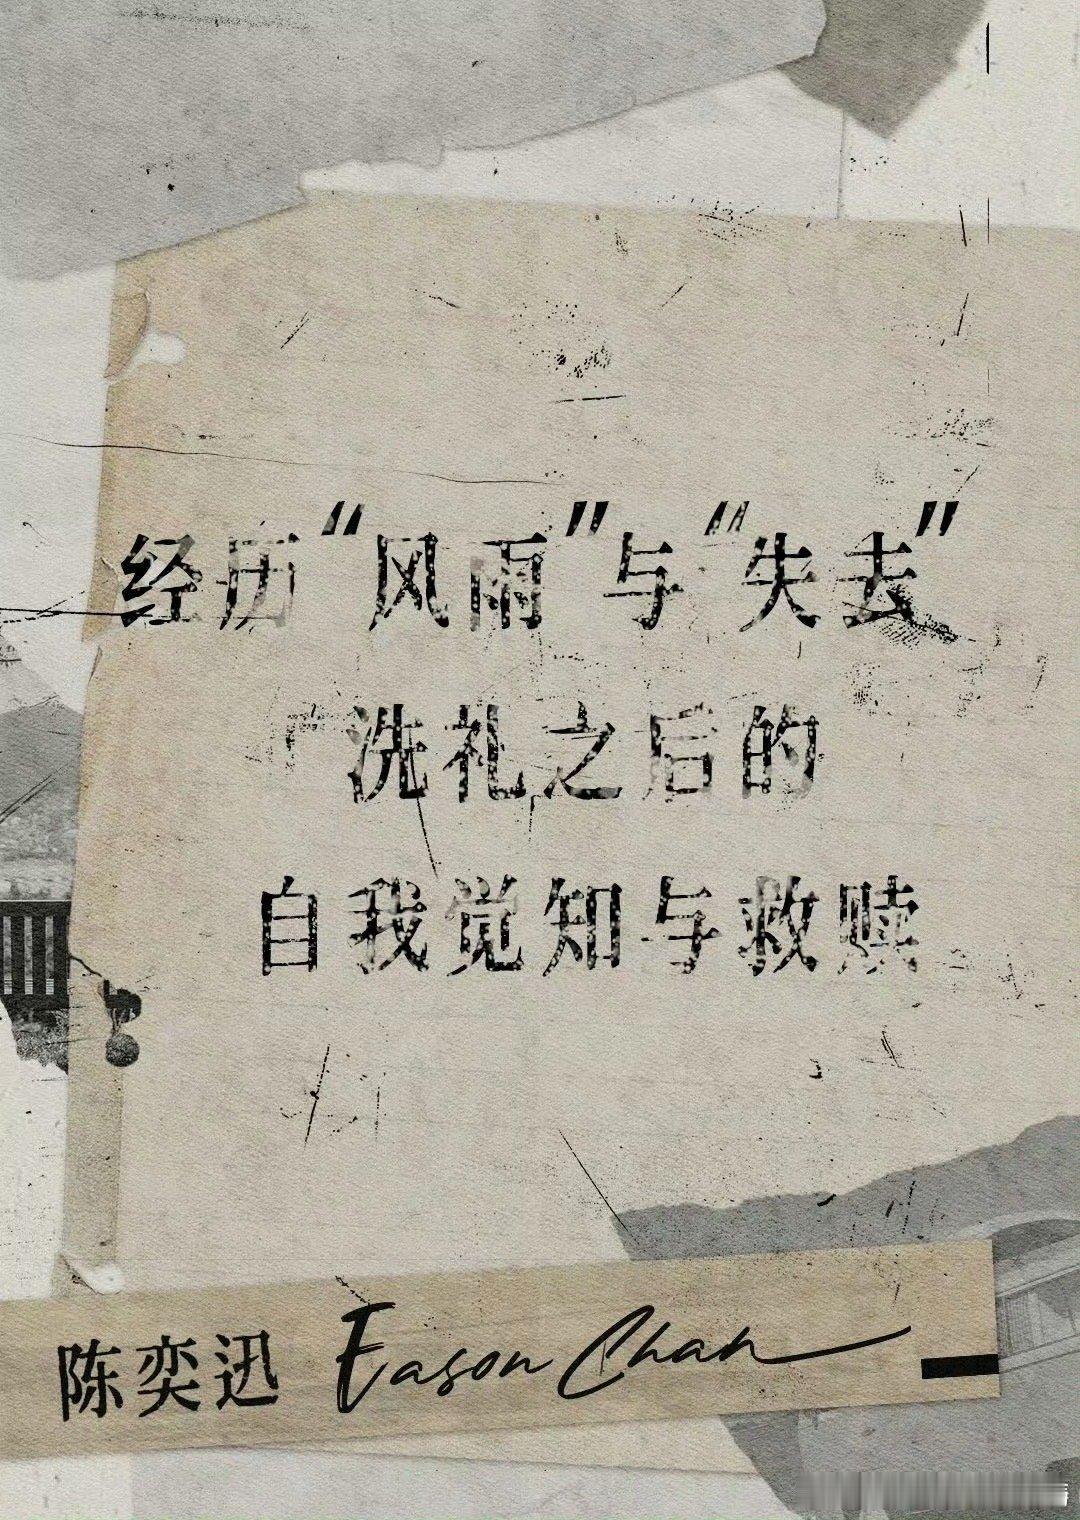 经历“风雨”与“失去”
洗礼之后的
自我觉知与救赎
陈奕迅 Eason Chan